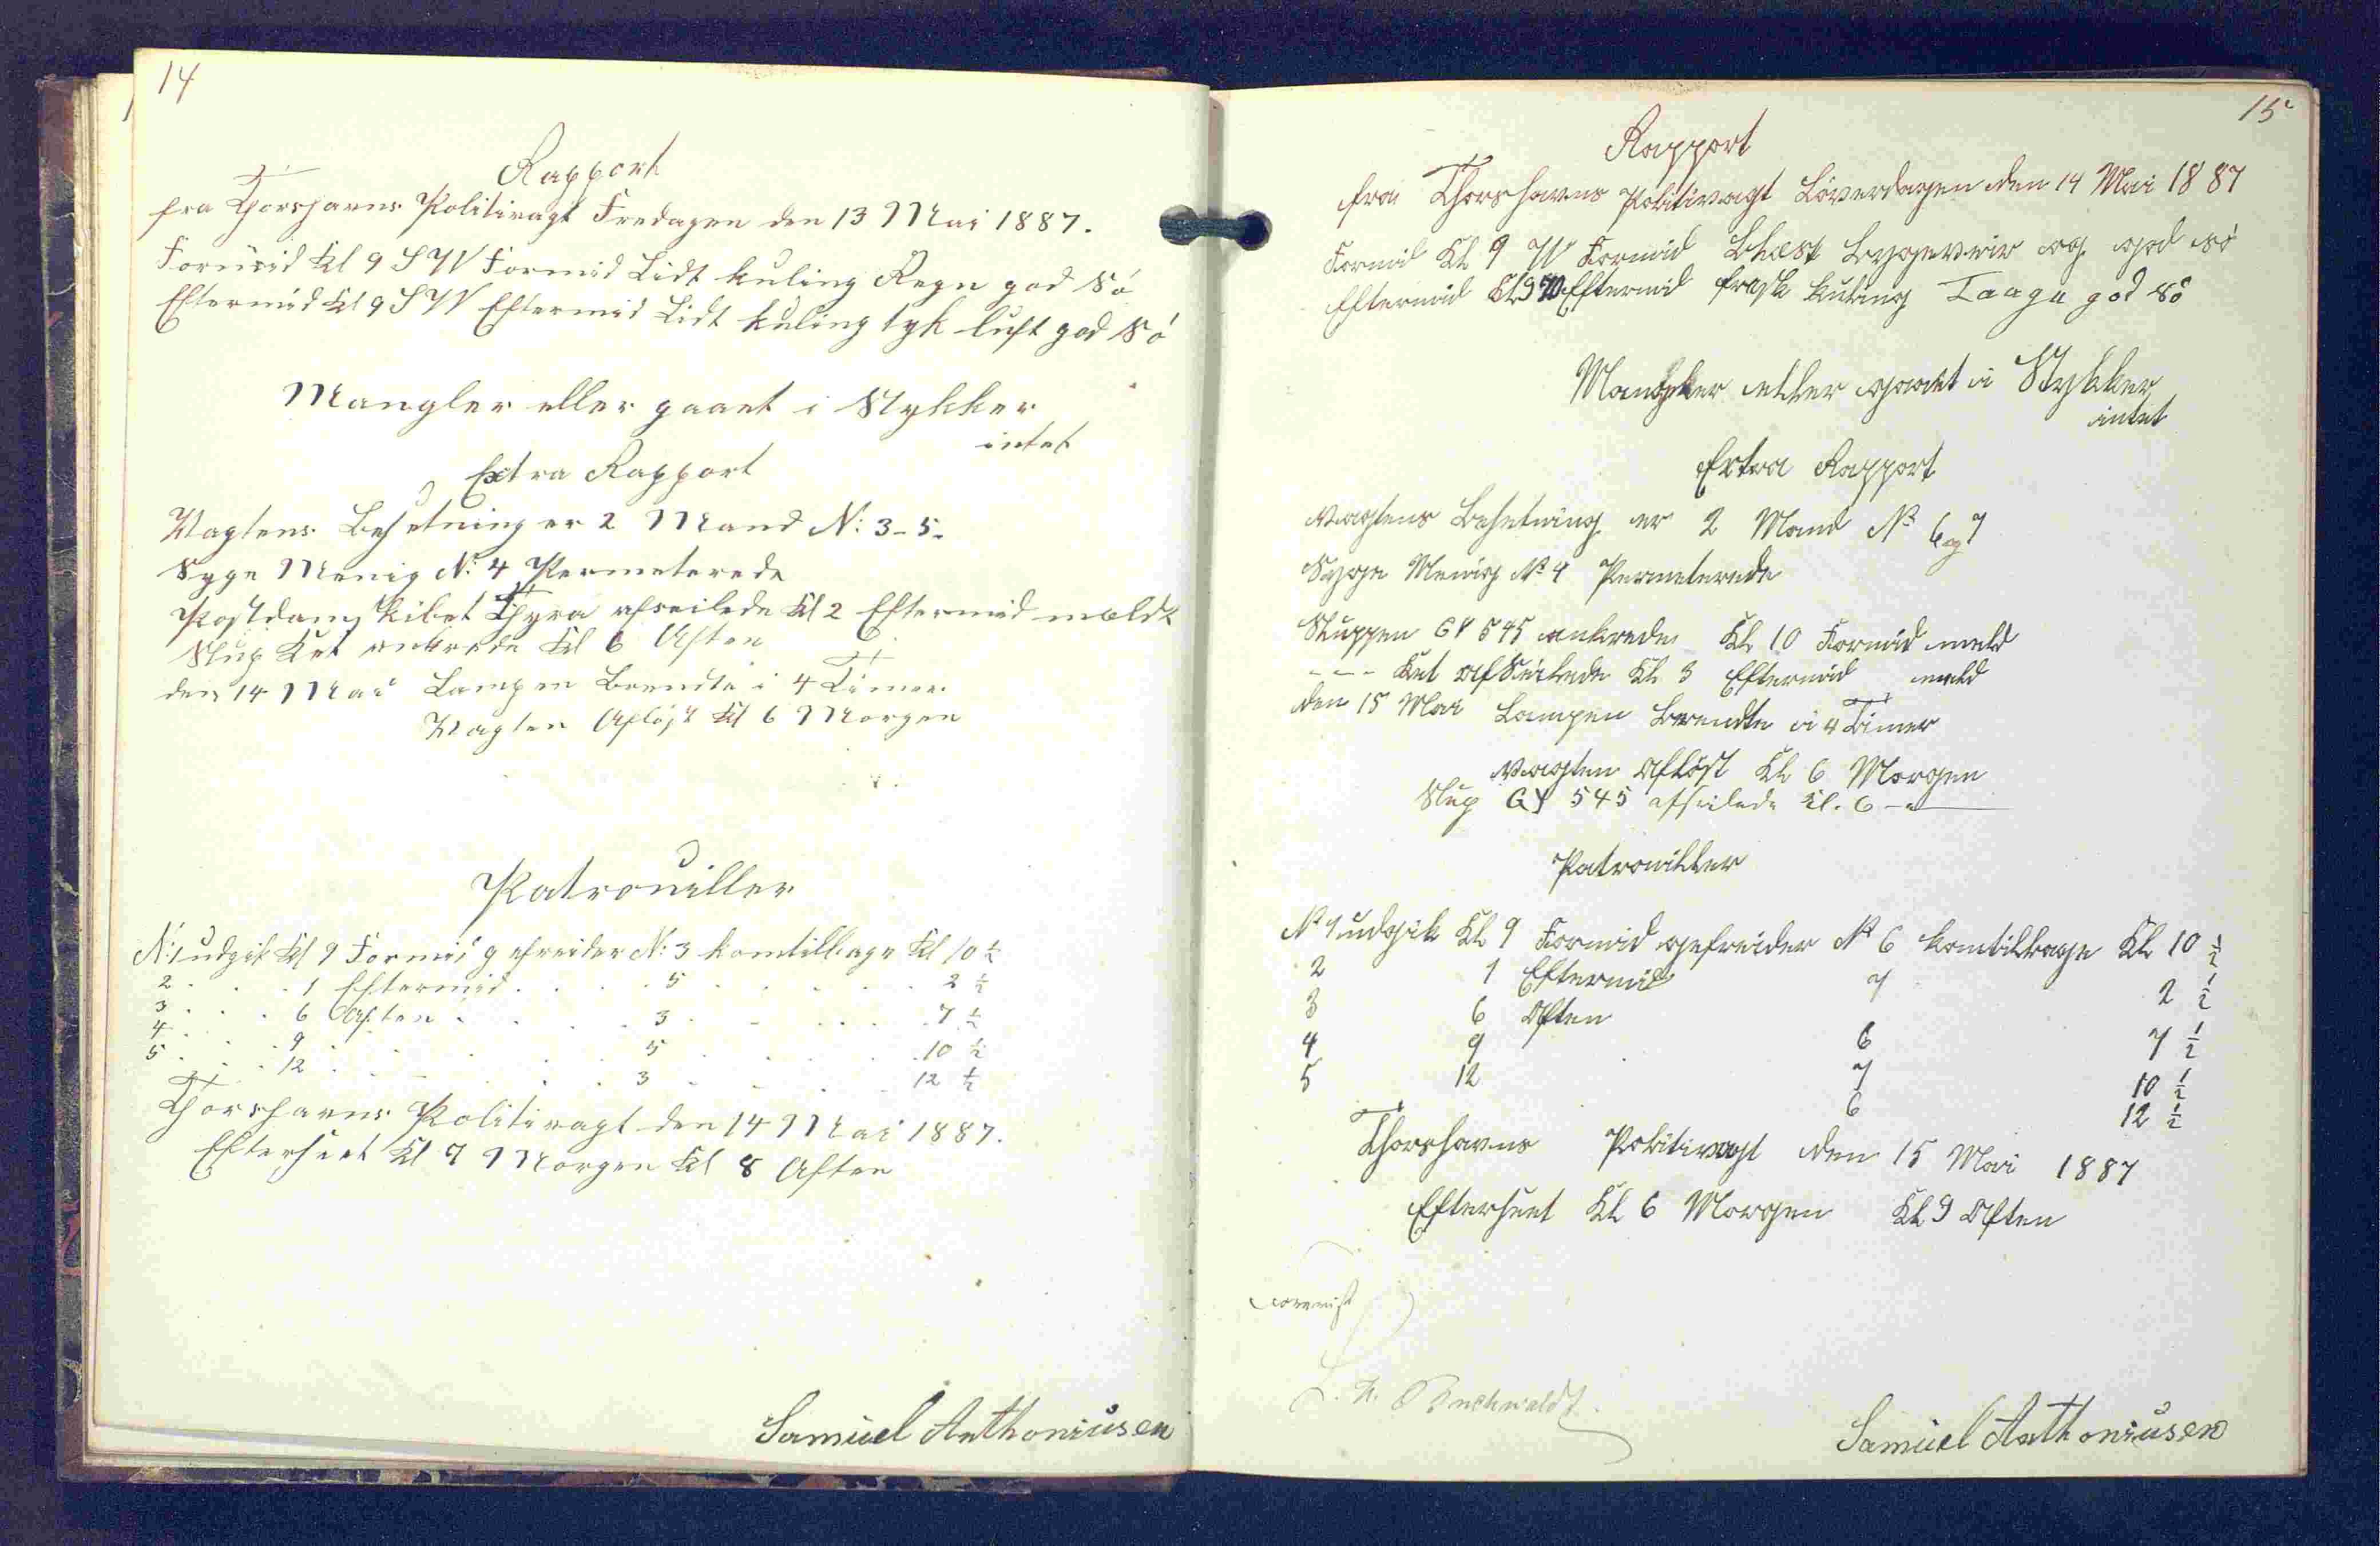 14
Rapport
fra Thorshavns Politivagt Fredagen den 13 Mai 1887.
Formid Kl 9 SW Formid Lidt kuling Regn god Sö
Eftermid Kl 9 SW Eftermid Lidt kuling tyk luft god Sö
Mangler eller gaaet i Stykker
intet
Extra Rapport
Vagtens Besetning er 2 Mand N: 3-5.
Syge Menig N: 4 Permeterede
Postdampskibet Thyra afseilede Kl 2 Eftermid meldt
Slup Ket ankrede Kl 6 Aften
den 14 Mai Lampen Brendte i 4 Timer
Vagten Aflöst Kl 6 Morgen
Patrouiller
N: 1 udgik Kl 9 Formid gefreider N: 3 komtilbage Kl 10 ½
2 . . . 1 Eftermid . . . . 5 . . . . . 2 ½
3 . . . 6 Aften . . . . 3 . . . . . 7 ½
4 . . . 9 . . . . . 5 . . . . . 10 ½
5 . . . 12 . . . . . 3 . . . . . 12 ½
Thorshavns Politivagt den 14 Mai 1887.
Efterseet Kl 7 Morgen Kl 8 Aften
Samuel Anthoniusen
15
Rapport
fra Thorshavns Politivagt Löverdagen den 14 Mai 1887
Formid Kl 9 W Formid Blæst Bygeveir og god sö
Eftermid Kl 9 W Eftermid frask kuling Taage god sö
Mangler eller gaaet i Stykker
intet
Extra Rapport
Vagtens Besetning er 2 Mand No 6 og 7
Syge Menig No 4 Permeterede
Sluppen GY 545 ankrede Kl 10 Formid meld
--- Ket afSeilede Kl 3 Eftermid meld
den 15 Mai Lampen Brendte i 4 Timer
Vagten Aflöst Kl 6 Morgen
Slup GY 545 afseilede Kl. 6 -"-
Patrouiller
No 1 udgik Kl 9 Formid gefreider No 6 komtilbage Kl 10 ½
2 1 Eftermid 7 2 ½
3 6 Aften 6 7 ½
4 9 7 10 ½
5 12 6 12 ½
Thorshavns Politivagt den 15 Mai 1887
Efterseet Kl 6 Morgen Kl 9 Aften
Forevist
Buchwaldt.
Samuel Anthoniusen